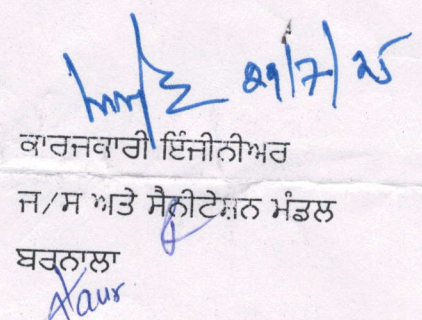 29/7/25
ਕਾਰਜਕਾਰੀ ਇੰਜੀਨੀਅਰ
ਜ/ਸ ਅਤੇ ਸੈਨੀਟੇਸ਼ਨ ਮੰਡਲ
ਬਰਨਾਲਾ
Kaur